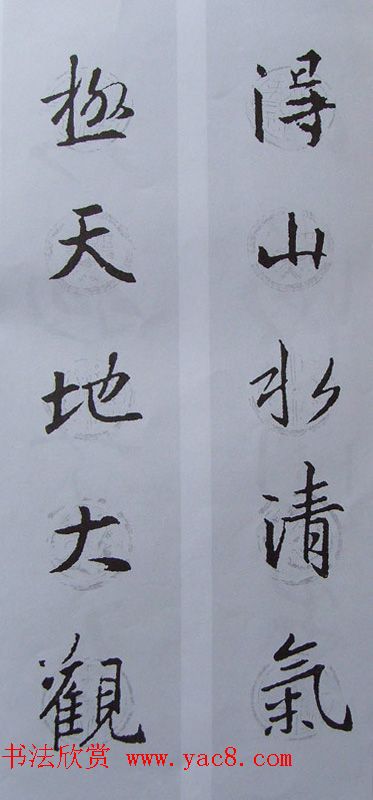 得山水清氣
極天地大觀
书法欣赏 www.yac8.com